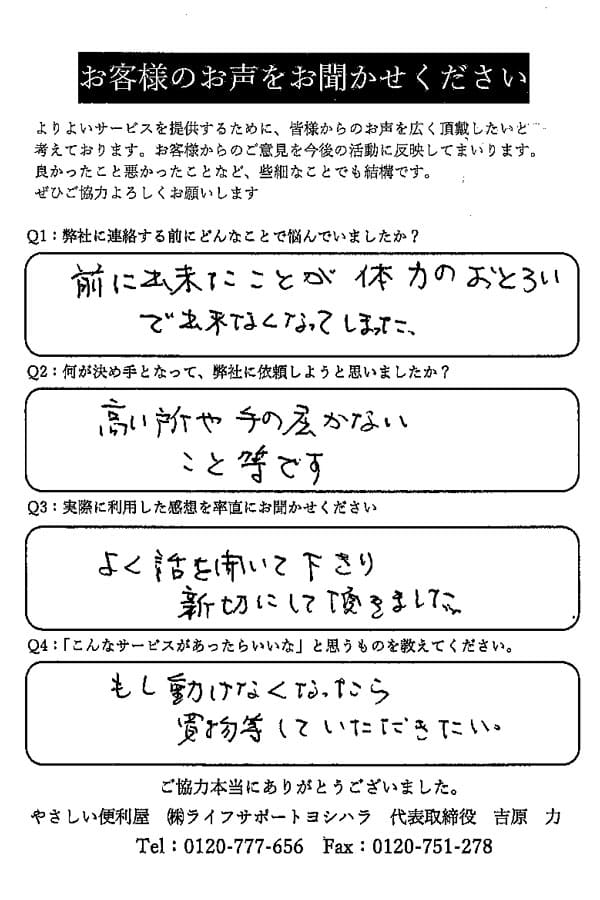 お客様のお声をお聞かせください
よりよいサービスを提供するために、皆様からのお声を広く頂戴したいと
考えております。お客様からのご意見を今後の活動に反映してまいります。
良かったこと悪かったことなど、些細なことでも結構です。
ぜひご協力よろしくお願いします
Q1：弊社に連絡する前にどんなことで悩んでいましたか？
前に出来たことが体力のおとろい
で出来なくなってしまった、
Q2：何が決め手となって、弊社に依頼しようと思いましたか？
高い所や手の届かない
こと等です
Q3：実際に利用した感想を率直にお聞かせください
よく話を聞いて下さり
新切にして頂きました
Q4：「こんなサービスがあったらいいな」と思うものを教えてください。
もし動けなくなったら
買物等していただきたい。
ご協力本当にありがとうございました。
やさしい便利屋　㈱ライフサポートヨシハラ　代表取締役　吉原　力
Tel：0120-777-656　Fax：0120-751-278